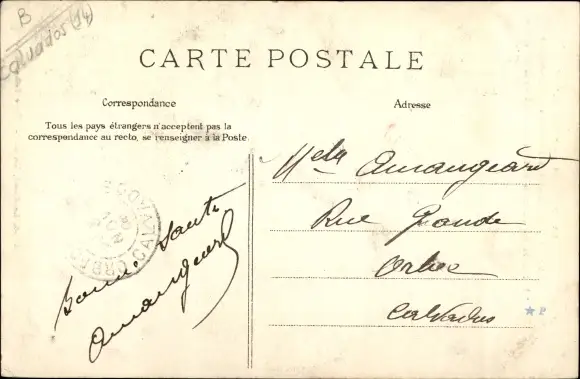 B
Calvados (14)
CARTE POSTALE
Correspondance
Adresse
Tous les pays étrangers n'acceptent pas la
correspondance au recto, se renseigner à la Poste.
Bonne Santé
Amangeard
Melle Amangeard
Rue Grande
Orbec
Calvados
ORBEC
CALVADOS